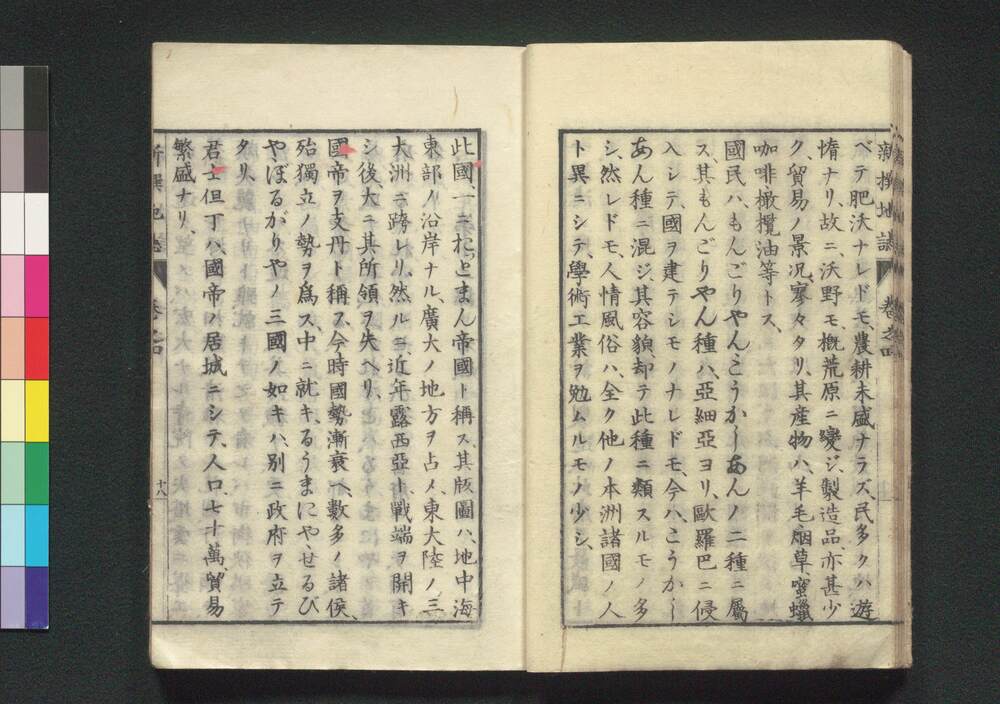 新撰地誌 卷之四
ベテ肥沃ナレドモ、農耕未盛ナラズ、民多クハ遊
惰ナリ、故ニ、沃野モ、概荒原ニ變ジ、製造品亦甚少
ク、貿易ノ景况、寥々タリ、其産物ハ、羊毛烟草、蜜蠟
咖啡、橄欖油等トス、
國民ハ、もんごりやんこうかしあんノ二種ニ屬
ス、其もんごりやん種ハ、亞細亞ヨリ、歐羅巴ニ侵
入シテ、國ヲ建テシモノナレドモ、今ハ、こうかし
あん種ニ混ジ、其容貌、却テ此種ニ類スルモノ多
シ、然レドモ、人情風俗ハ、全ク他ノ本洲諸國ノ人
ト異ニシテ、學術工業ヲ勉ムルモノ少シ、
此國、一ニおっとまん帝國ト稱ス、其版圖ハ、地中海
東部ノ沿岸ナル、廣大ノ地方ヲ占メ、東大陸ノ、三
大洲ニ跨レリ、然ルニ、近年露西亞ト、戰端ヲ開キ
シ後、大ニ其所領ヲ失ヘリ、
國帝ヲ支丹ト稱ス、今時國勢漸衰ヘ、數多ノ諸侯、
殆獨立ノ勢ヲ爲ス、中ニ就キ、るうまにやせるび
やぼるがりやノ三國ノ如キハ、別ニ政府ヲ立テ
タリ、
君士但丁ハ、國帝ノ居城ニシテ、人口七十萬、貿易
繁盛ナリ、
新撰地誌 卷之四 十八